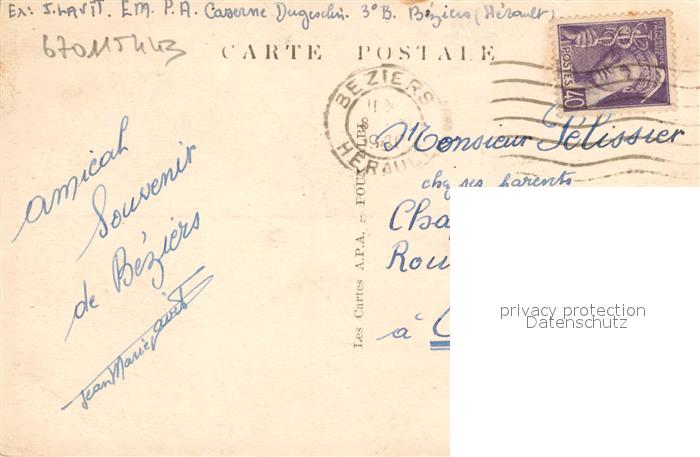 Ex: J. LAVIT. E.M. P.A. Caserne Duguesclin. 3°B. Béziers (Hérault)
67011544
CARTE POSTALE
POSTES 40
BEZIERS
HERAULT
Monsieur Pélissier
chez ses parents
Cha
Rou
à
amical
Souvenir
de Béziers
Jean Marie Lavit
Les Cartes A.P.A. = POUX ALBI
privacy protection
Datenschutz